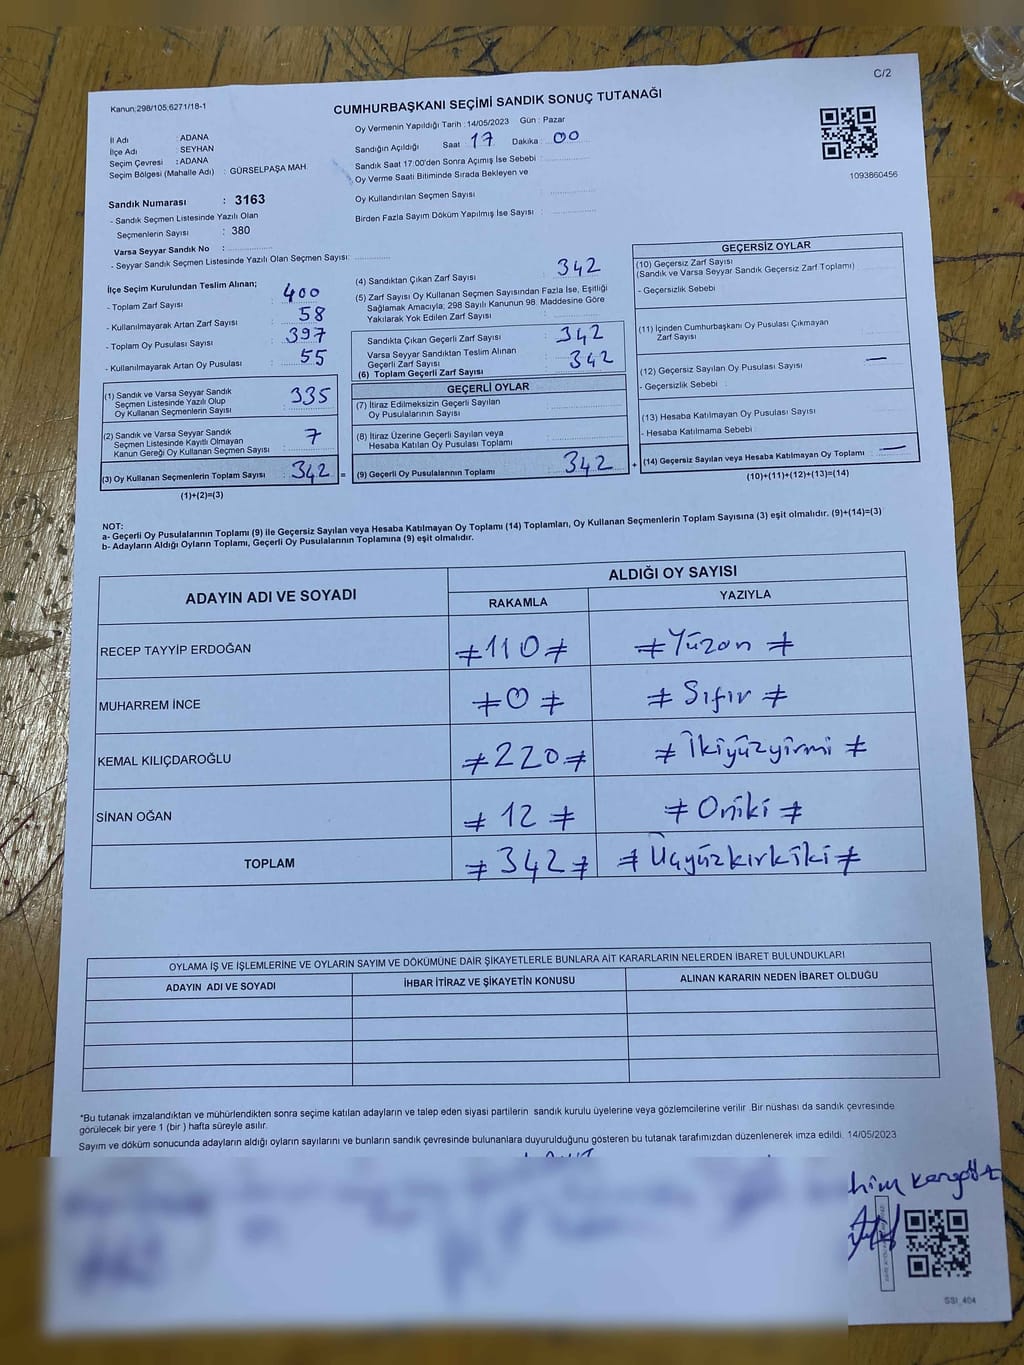 C/2
Kanun;298/105;6271/18-1
CUMHURBAŞKANI SEÇİMİ SANDIK SONUÇ TUTANAĞI
İl Adı : ADANA
İlçe Adı : SEYHAN
Seçim Çevresi : ADANA
Seçim Bölgesi (Mahalle Adı) : GÜRSELPAŞA MAH.
Oy Vermenin Yapıldığı Tarih : 14/05/2023 Gün : Pazar
Sandığın Açıldığı Saat : 17 Dakika : 00
Sandık Saat 17:00'den Sonra Açımış İse Sebebi :
Oy Verme Saati Bitiminde Sırada Bekleyen ve
Oy Kullandırılan Seçmen Sayısı :
Birden Fazla Sayım Döküm Yapılmış İse Sayısı :
1093860456
Sandık Numarası : 3163
- Sandık Seçmen Listesinde Yazılı Olan
Seçmenlerin Sayısı : 380
Varsa Seyyar Sandık No :
- Seyyar Sandık Seçmen Listesinde Yazılı Olan Seçmen Sayısı:
İlçe Seçim Kurulundan Teslim Alınan;
- Toplam Zarf Sayısı : 400
- Kullanılmayarak Artan Zarf Sayısı : 58
- Toplam Oy Pusulası Sayısı : 397
- Kullanılmayarak Artan Oy Pusulası : 55
(1) Sandık ve Varsa Seyyar Sandık
Seçmen Listesinde Yazılı Olup
Oy Kullanan Seçmenlerin Sayısı : 335
(2) Sandık ve Varsa Seyyar Sandık
Seçmen Listesinde Kayıtlı Olmayan
Kanun Gereği Oy Kullanan Seçmen Sayısı : 7
(3) Oy Kullanan Seçmenlerin Toplam Sayısı : 342 =
(1)+(2)=(3)
(4) Sandıktan Çıkan Zarf Sayısı : 342
(5) Zarf Sayısı Oy Kullanan Seçmen Sayısından Fazla İse, Eşitliği
Sağlamak Amacıyla; 298 Sayılı Kanunun 98. Maddesine Göre
Yakılarak Yok Edilen Zarf Sayısı :
Sandıkta Çıkan Geçerli Zarf Sayısı : 342
Varsa Seyyar Sandıktan Teslim Alınan
Geçerli Zarf Sayısı :
(6) Toplam Geçerli Zarf Sayısı : 342
GEÇERLİ OYLAR
(7) İtiraz Edilmeksizin Geçerli Sayılan
Oy Pusulalarının Sayısı :
(8) İtiraz Üzerine Geçerli Sayılan veya
Hesaba Katılan Oy Pusulası Toplamı :
(9) Geçerli Oy Pusulalarının Toplamı : 342 +
GEÇERSİZ OYLAR
(10) Geçersiz Zarf Sayısı
(Sandık ve Varsa Seyyar Sandık Geçersiz Zarf Toplamı)
- Geçersizlik Sebebi :
(11) İçinden Cumhurbaşkanı Oy Pusulası Çıkmayan
Zarf Sayısı
(12) Geçersiz Sayılan Oy Pusulası Sayısı : —
- Geçersizlik Sebebi :
(13) Hesaba Katılmayan Oy Pusulası Sayısı :
- Hesaba Katılmama Sebebi :
(14) Geçersiz Sayılan veya Hesaba Katılmayan Oy Toplamı : —
(10)+(11)+(12)+(13)=(14)
NOT:
a- Geçerli Oy Pusulalarının Toplamı (9) ile Geçersiz Sayılan veya Hesaba Katılmayan Oy Toplamı (14) Toplamları, Oy Kullanan Seçmenlerin Toplam Sayısına (3) eşit olmalıdır. (9)+(14)=(3)
b- Adayların Aldığı Oyların Toplamı, Geçerli Oy Pusulalarının Toplamına (9) eşit olmalıdır.
ADAYIN ADI VE SOYADI ALDIĞI OY SAYISI
RAKAMLA YAZIYLA
RECEP TAYYİP ERDOĞAN ≠110≠ ≠Yüzon≠
MUHARREM İNCE ≠0≠ ≠Sıfır≠
KEMAL KILIÇDAROĞLU ≠220≠ ≠İkiyüzyirmi≠
SİNAN OĞAN ≠12≠ ≠Oniki≠
TOPLAM ≠342≠ ≠Üçyüzkırkiki≠
OYLAMA İŞ VE İŞLEMLERİNE VE OYLARIN SAYIM VE DÖKÜMÜNE DAİR ŞİKAYETLERLE BUNLARA AİT KARARLARIN NELERDEN İBARET BULUNDUKLARI
ADAYIN ADI VE SOYADI İHBAR İTİRAZ VE ŞİKAYETİN KONUSU ALINAN KARARIN NEDEN İBARET OLDUĞU
*Bu tutanak imzalandıktan ve mühürlendikten sonra seçime katılan adayların ve talep eden siyasi partilerin sandık kurulu üyelerine veya gözlemcilerine verilir .Bir nüshası da sandık çevresinde
görülecek bir yere 1 (bir ) hafta süreyle asılır.
Sayım ve döküm sonucunda adayların aldığı oyların sayılarını ve bunların sandık çevresinde bulunanlara duyurulduğunu gösteren bu tutanak tarafımızdan düzenlenerek imza edildi. 14/05/2023
SSI_404